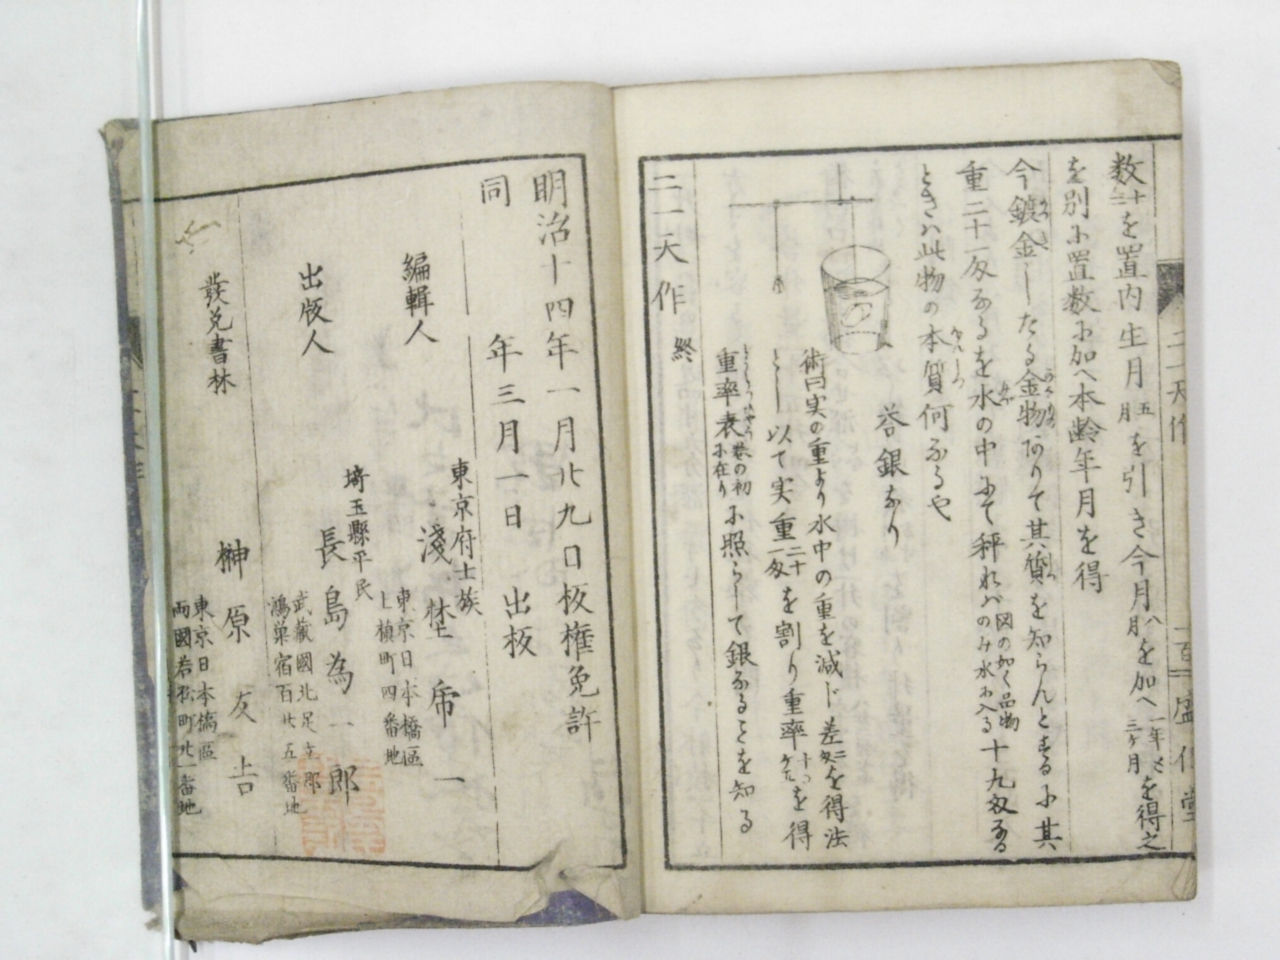 数二十三を置内生月五月を引き今月八月を加へ一年ト三ケ月を得之
を別に置数に加へ本齢年月を得
今鍍金したる金物ありて其質を知らんとするに其
重二十一匁なるを水の中にて秤れバ図の如く品物のみ水に入る十九匁なる
ときハ此物の本質何なるや
答銀なり
術曰実の重より水中の重を減じ差二匁を得法
とし以て実重二十一匁を割り重率十〇ケ五を得
重率表巻の初に在りに照らして銀なることを知る
二一天作 終
二一天作
百
盛化堂
明治十四年一月廿九日板権免許
同 年三月一日 出板
編輯人
東京府士族
淺埜帝一
東京日本橋區
上槙町四番地
出版人
埼玉縣平民
長島為一郎
武蔵國北足立郡
鴻巣宿百廿五番地
發兌書林
榊原友吉
東京日本橋區
両國若松町廿一番地